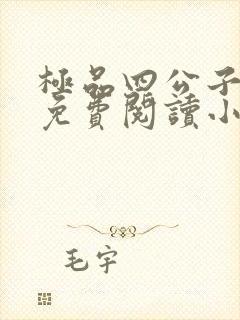 極品四公子
免費閱讀小
毛宇